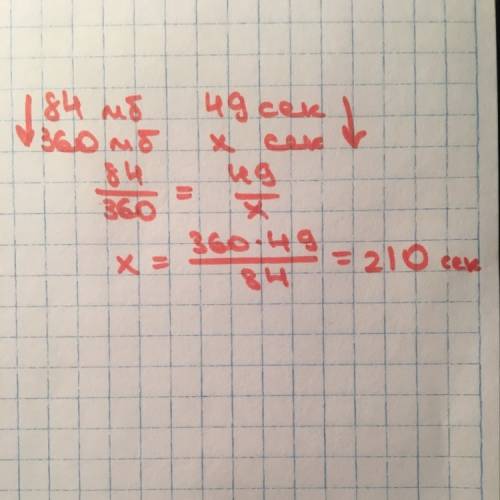 ↓ 84 мб 49 сек ↓
360 мб x сек
84/360 = 49/x
x = 360·49/84 = 210 сек